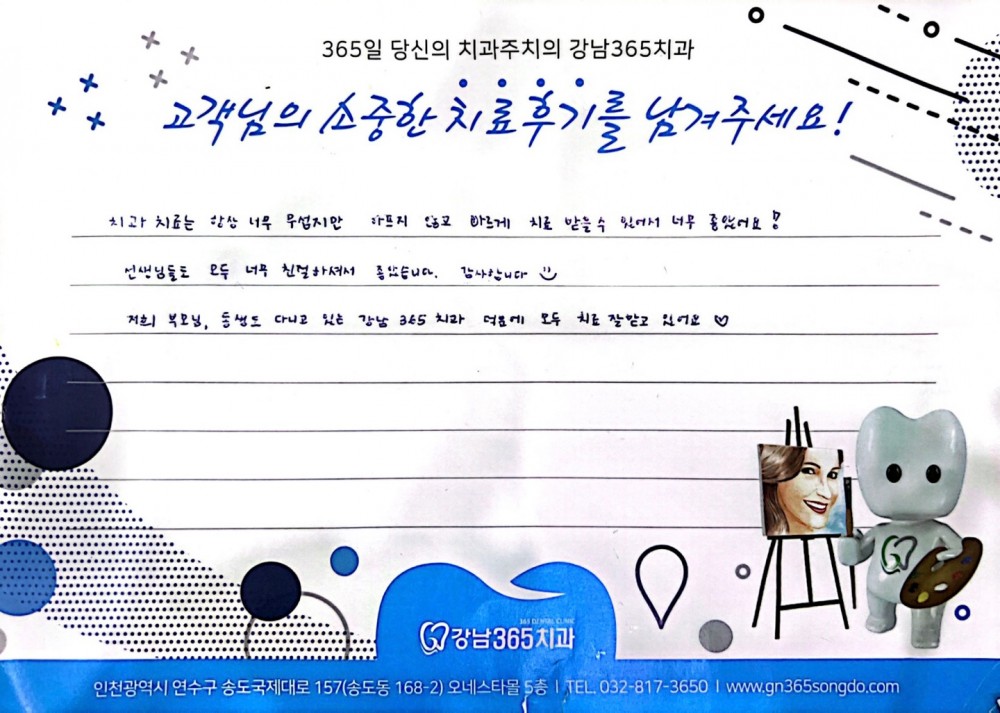 365일 당신의 치과주치의 강남365치과
고객님의 소중한 치료후기를 남겨주세요!
치과 치료는 항상 너무 무섭지만 아프지 않고 빠르게 치료 받을수 있어서 너무 좋았어요!
선생님들도 모두 너무 친절하셔서 좋았습니다. 감사합니다
저희 부모님, 동생도 다니고 있는 강남 365 치과 덕분에 모두 치료 잘받고 있어요 ♡
365 DENTAL CLINIC
강남365치과
인천광역시 연수구 송도국제대로 157(송도동 168-2) 오네스타몰 5층 | TEL. 032-817-3650 | www.gn365songdo.com